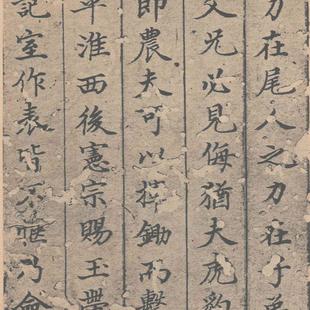 力在尾人之力在于弟
父兄必見侮猶夫虎豹
即農夫可以捽鋤而擊
平淮西後憲宗賜王帶
記室作表皆不雅乃會